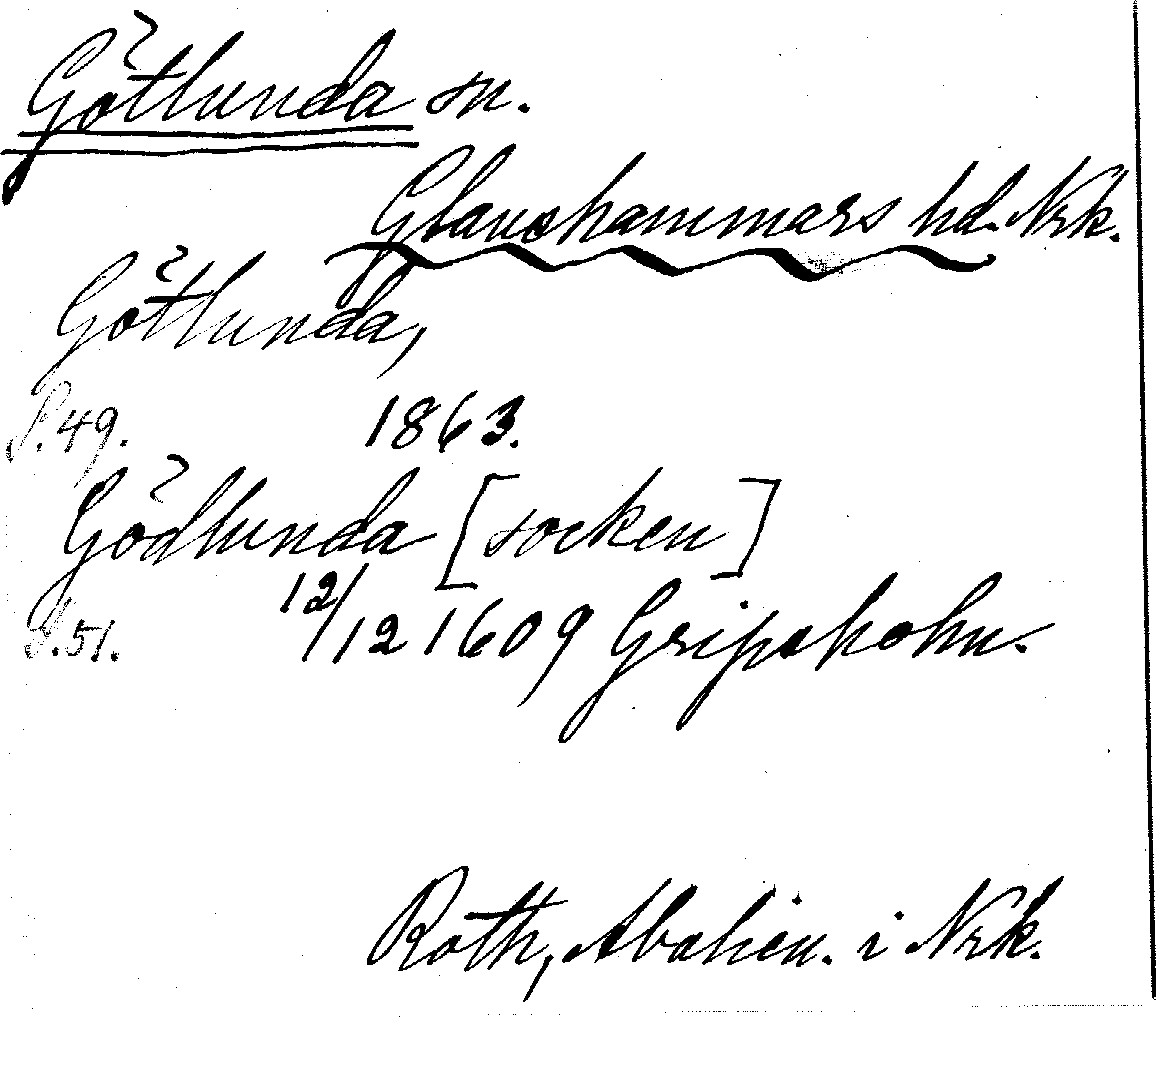 Götlunda sn.
Glanshammars hd. Nrk.
Götlunda,
S. 49. 1863.
Gödlunda [socken]
S. 51. 12/12 1609 Gripsholm.
Roth, i Nrk.